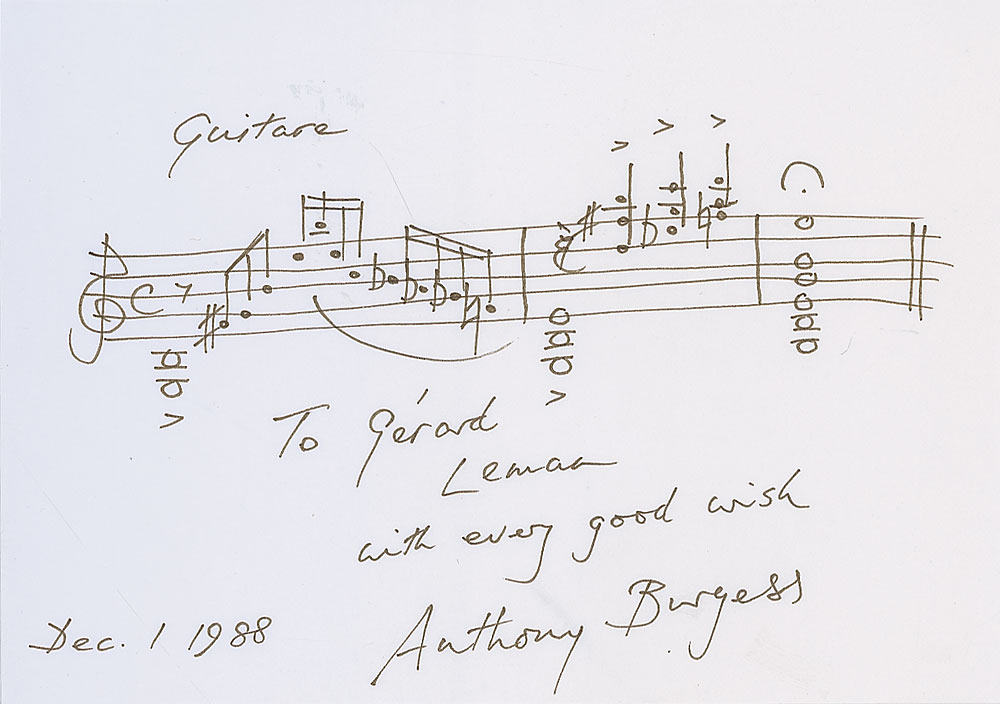 Guitare
To Gérard
Leman
with every good wish
Anthony Burgess
Dec. 1 1988